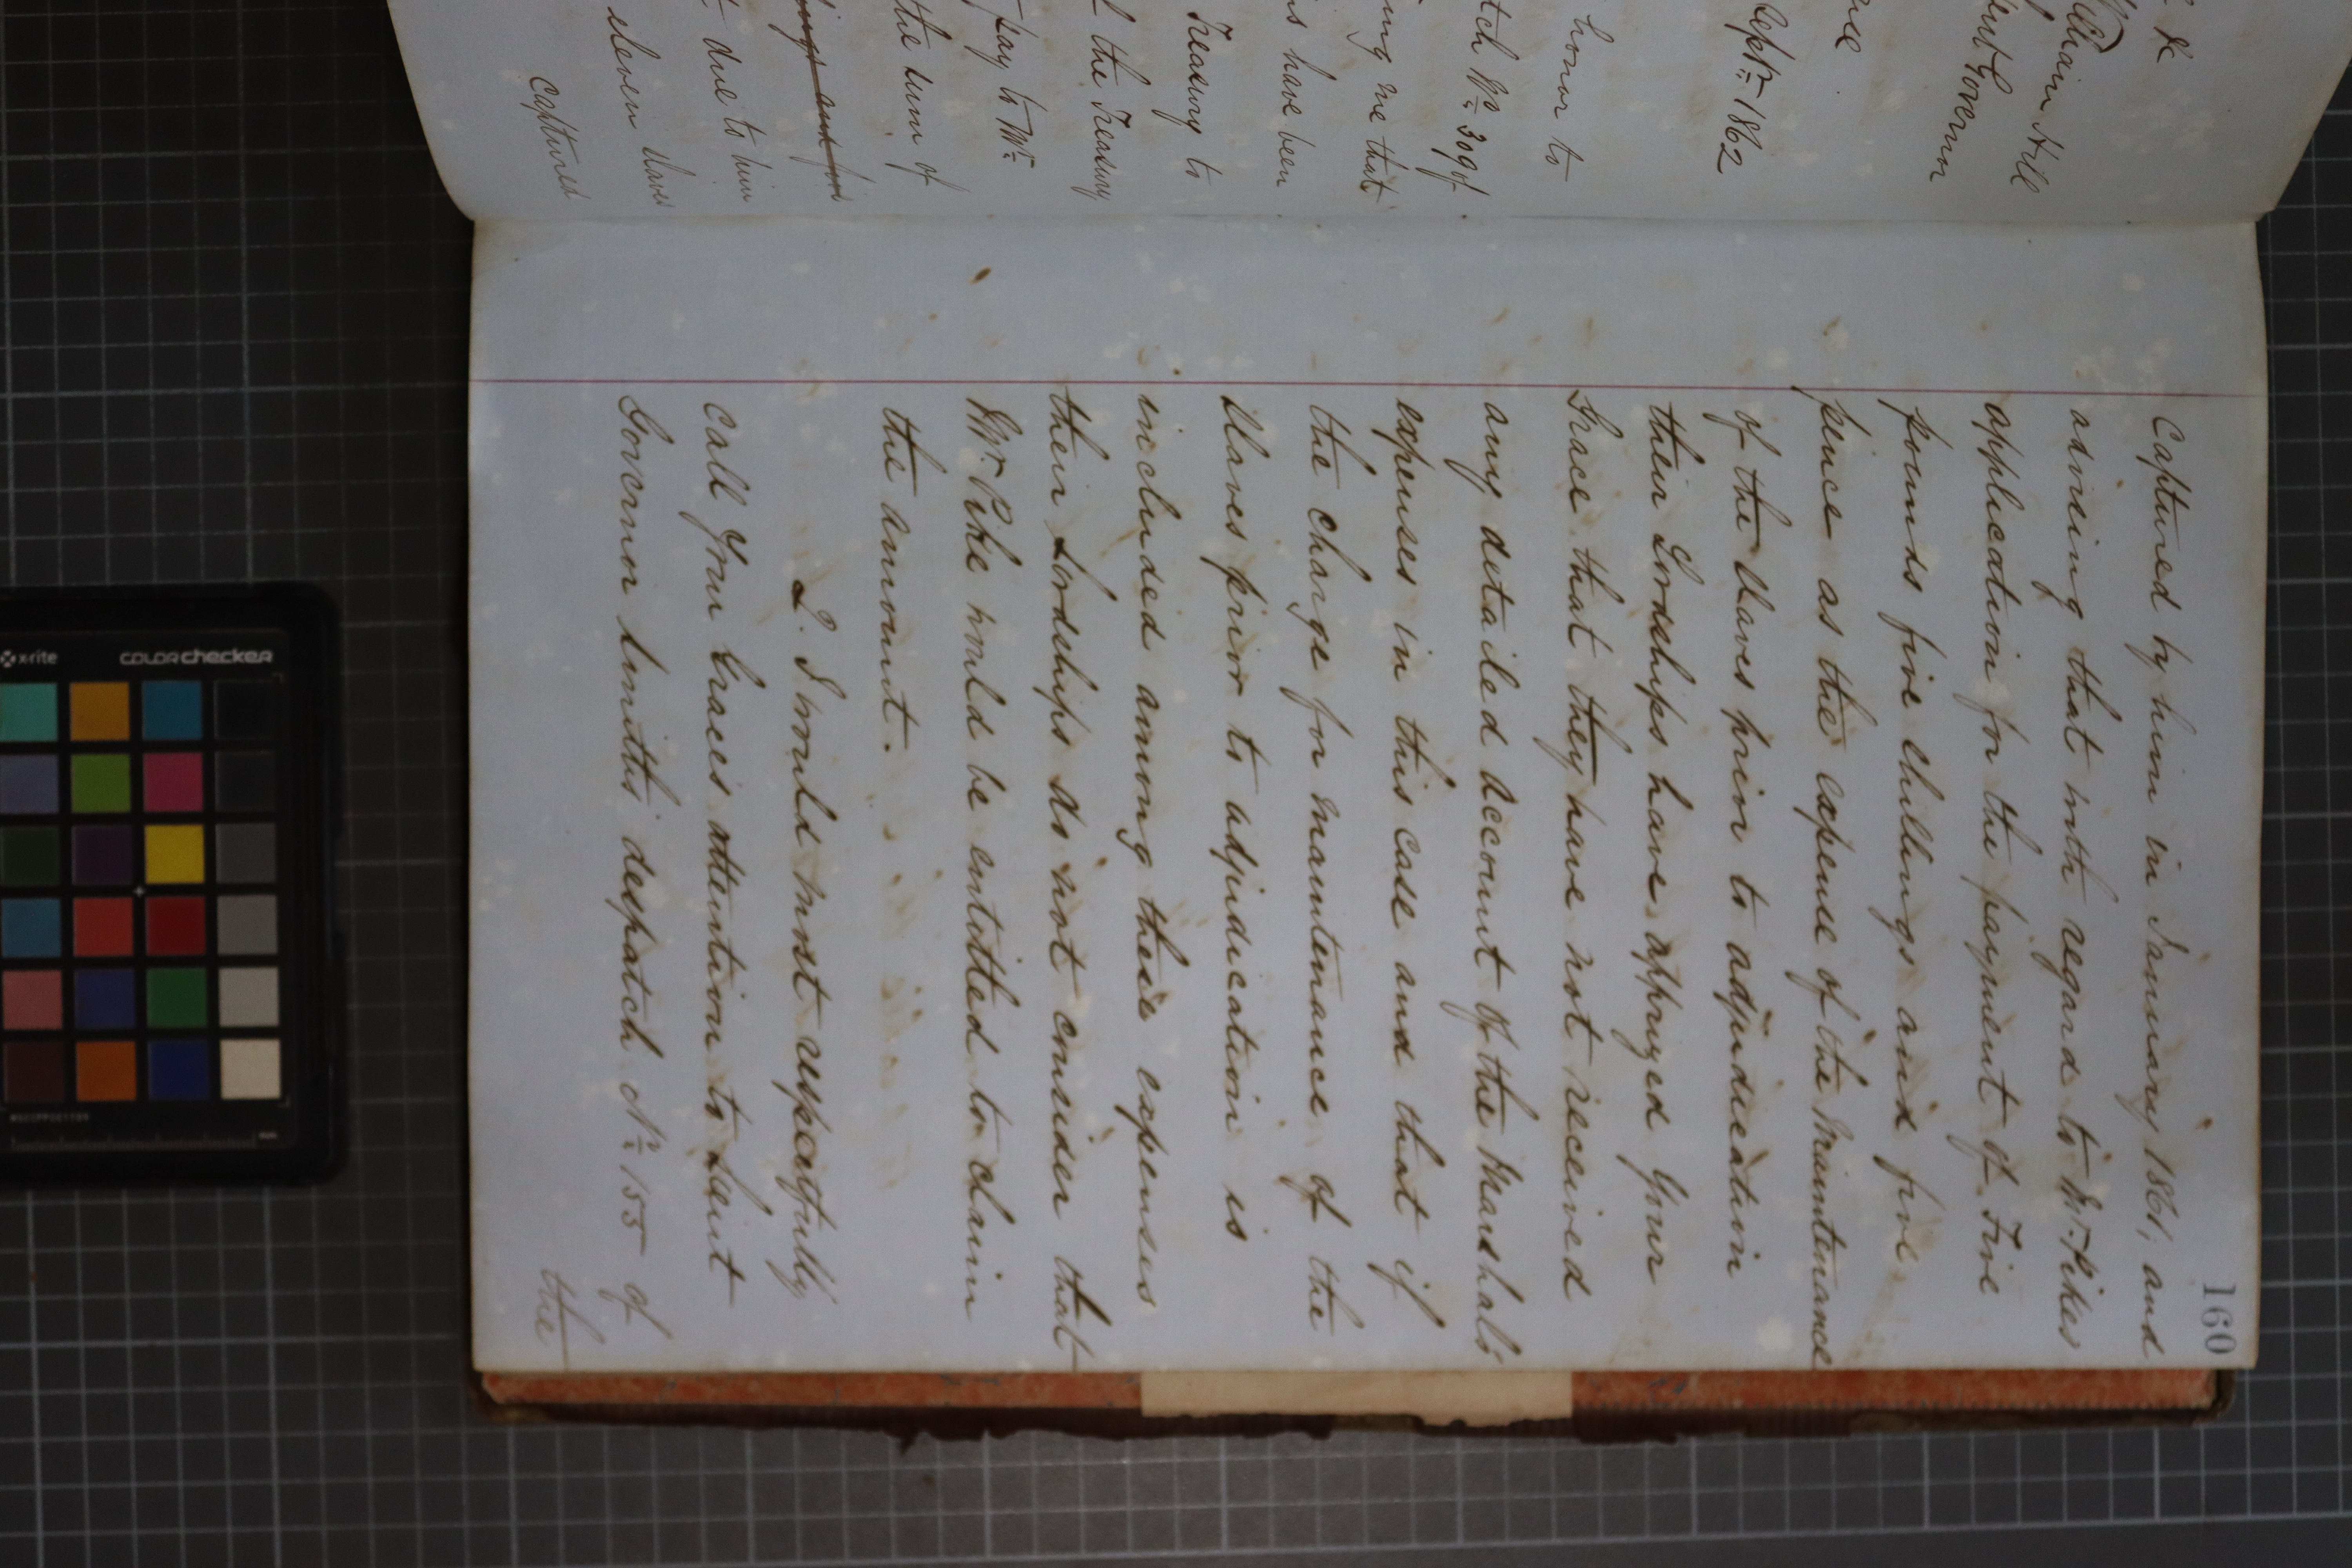 & R
William Hill
Governor
Septr 1862
honor to
No 309 of
ing me that
have been
Treasury to
the Treasury
pay to Mr
the sum of
due to him
eleven slaves
captured
160
captured by him in January 1861, and
advising that with regard to Mr. Pikes
application for the payment of Five
pounds five shillings and five
pence as the expense of the Maintenance
of the Slaves prior to adjudication
their Lordships have apprized Your
Grace that they have not received
any detailed account of the Marshal's
expenses in this case and that if
the charge for maintenance of the
Slaves prior to adjudication is
included among these expenses
their Lordships do not consider that
Mr. Pike would be entitled to claim
the amount.
2. I would most respectfully
call Your Graces attention to Lieut
Governor Smiths despatch No 155 of
the
x-rite
colorchecker